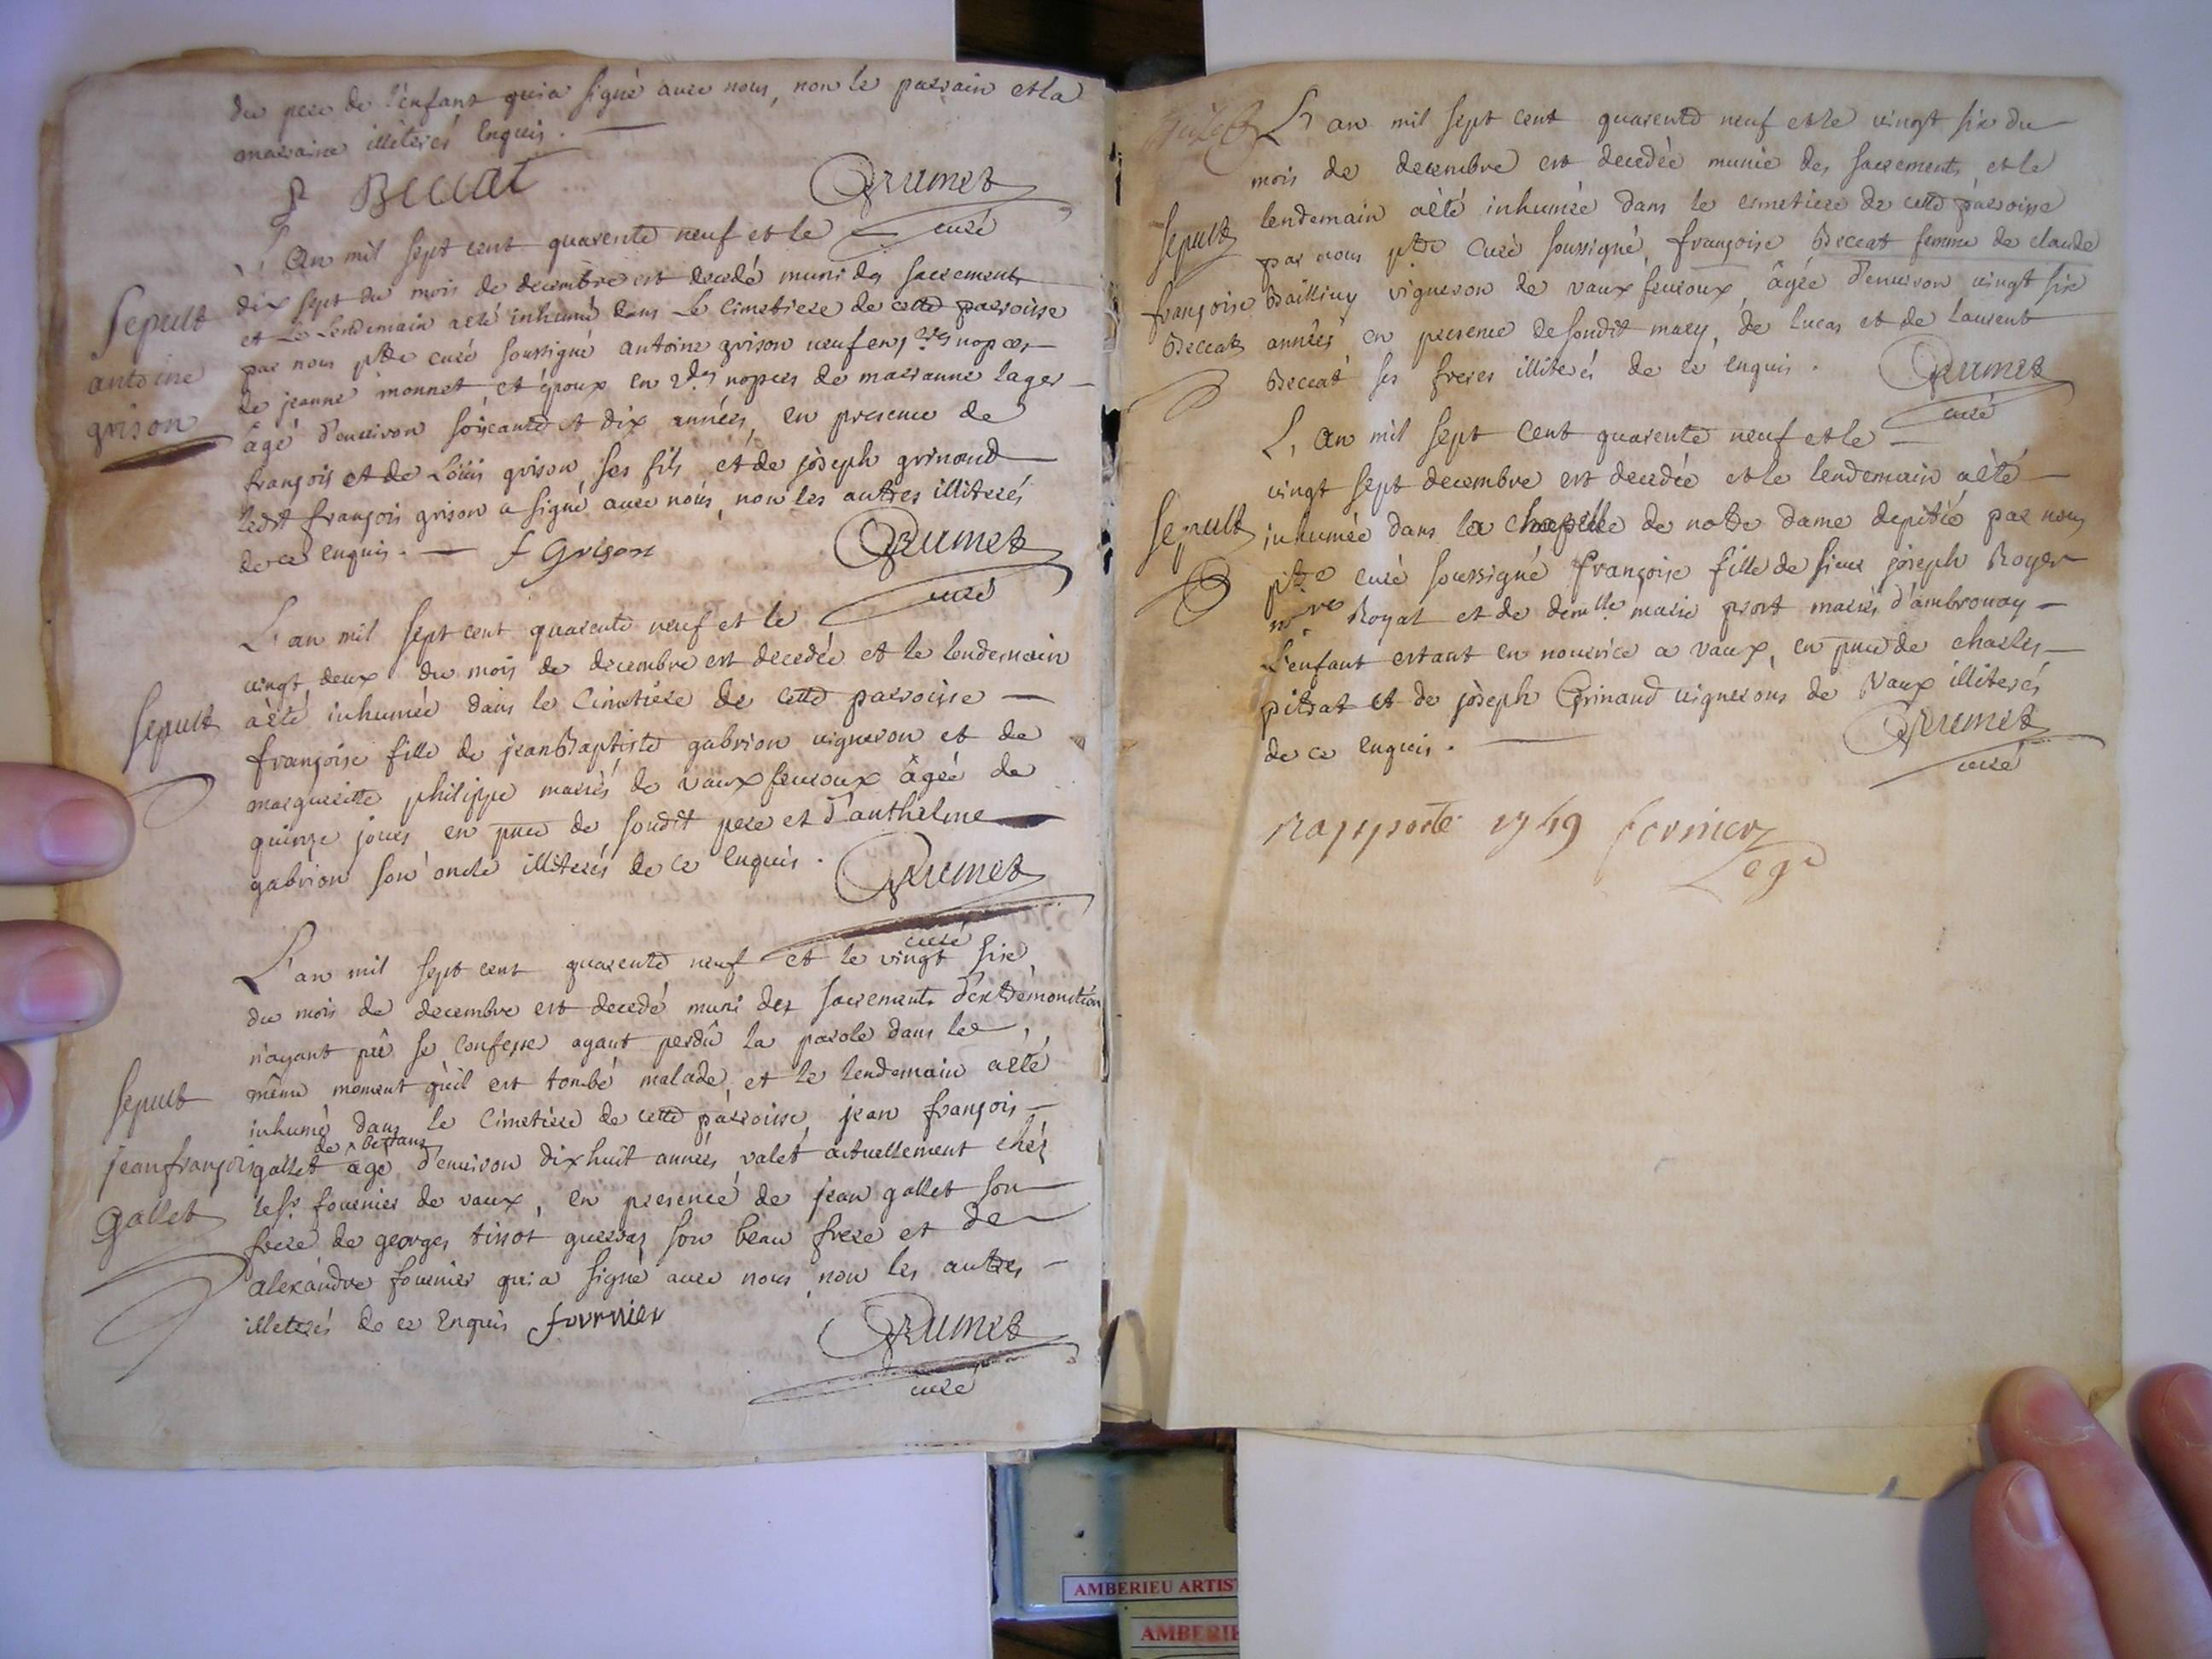 du pere de l'enfant qui a signé avec nous, non le parrain et la
marraine illiterés enquis.
P Beccat
Grumet
curé
L'an mil sept cent quarente neuf et le
dix sept du mois de decembre est decedé muni des sacrements
et Le Lendemain a eté inhumé dans Le Cimetiere de cette parroisse
par nous ptre curé soussigné antoine grison veuf en 1eres nopces
de jeanne monnet et époux en 2des nopces de marianne lager
âgé d'environ soixante et dix années, en presence de
françois et de Loüis grison ses fils et de joseph grinand
ledt françois grison a signé avec nous, non les autres illiterés
de ce enquis. f Grison
Grumet
curé
Sepult
antoine
grison
L'an mil sept cent quarente neuf et le
vingt deux du mois de decembre est decedée et le lendemain
a eté inhumée dans le Cimetiere de cette parroisse
françoise fille de jean Baptiste gabrion vigneron et de
margueritte philippe mariés de vaux fevroux âgée de
quinze jours, en pnce de soudit pere et d'anthelme
gabrion son oncle illiterés de ce enquis.
Grumet
curé
Sepult
L'an mil sept cent quarente neuf et le vingt six
du mois de decembre est decedé muni des sacrements d'extrémonction
n'ayant pû se confesser ayant perdû la parole dans le
même moment qu'il est tombé malade, et le lendemain a eté
inhumé dans le Cimetiere de cette parroisse, jean françois
gallet âgé d'environ dixhuit années, valet actuellement chéz
le sr. fournier de vaux, en presence de jean gallet son
frere de georges tissot son beau frere et de
alexandre fournier qui a signé avec nous non les autres
illeterés de ce enquis fournier
Grumet
curé
Sepult
jean françois
Gallet
L'an mil sept cent quarente neuf et le vingt six du
mois de decembre est decedée munie des sacrements, et le
lendemain a eté inhumée dans le cimetiere de cette parroisse
par nous ptre curé soussigné, françoise Beccat femme de claude
Bailliny vigneron de vaux fevroux, âgée d'environ vingt six
années en presence de soudit mary, de lucas et de laurent
Beccat ses freres illiterés de ce enquis.
Grumet
curé
Sepult
françoise
Beccat
L'an mil sept cent quarente neuf et le
vingt sept decembre est decedée et le lendemain a eté
inhumée dans la chapelle de notre dame de pitié par nous
ptre curé soussigné françoise fille de sieur joseph Royer
nre Royal et de demlle. marie mariés d'ambronay
L'enfant estant en nourrice a vaux, en pnce de charles
pitrat et de joseph Grinand vignerons de vaux illiterés
de ce enquis.
Grumet
curé
Sepult
Rapporté 1749
AMBERIEU ARTIS
AMBERIE